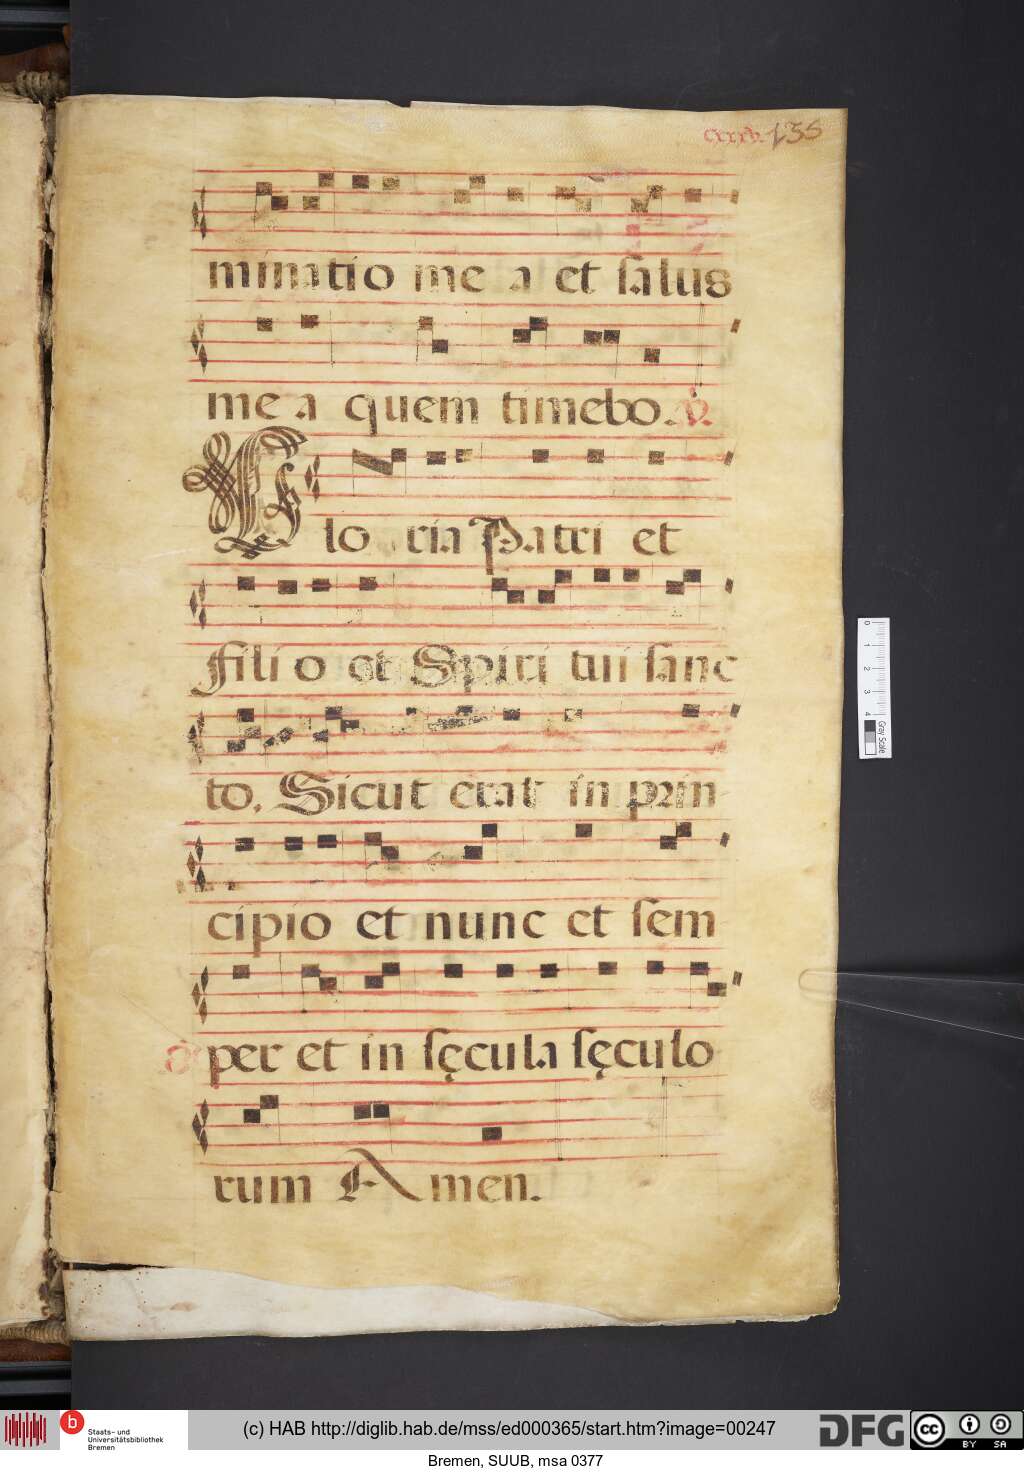 cxxxv. 135
minatio mea et salus
mea quem timebo. V.
Gloria Patri et
Filio et Spiritui sanc
to, Sicut erat in prin
cipio et nunc et sem
per et in sęcula sęculo
rum Amen.
0 1 2 3 4 Gray Scale
b Staats- und Universitätsbibliothek Bremen
(c) HAB http://diglib.hab.de/mss/ed000365/start.htm?image=00247
DFG cc BY SA
Bremen, SUUB, msa 0377